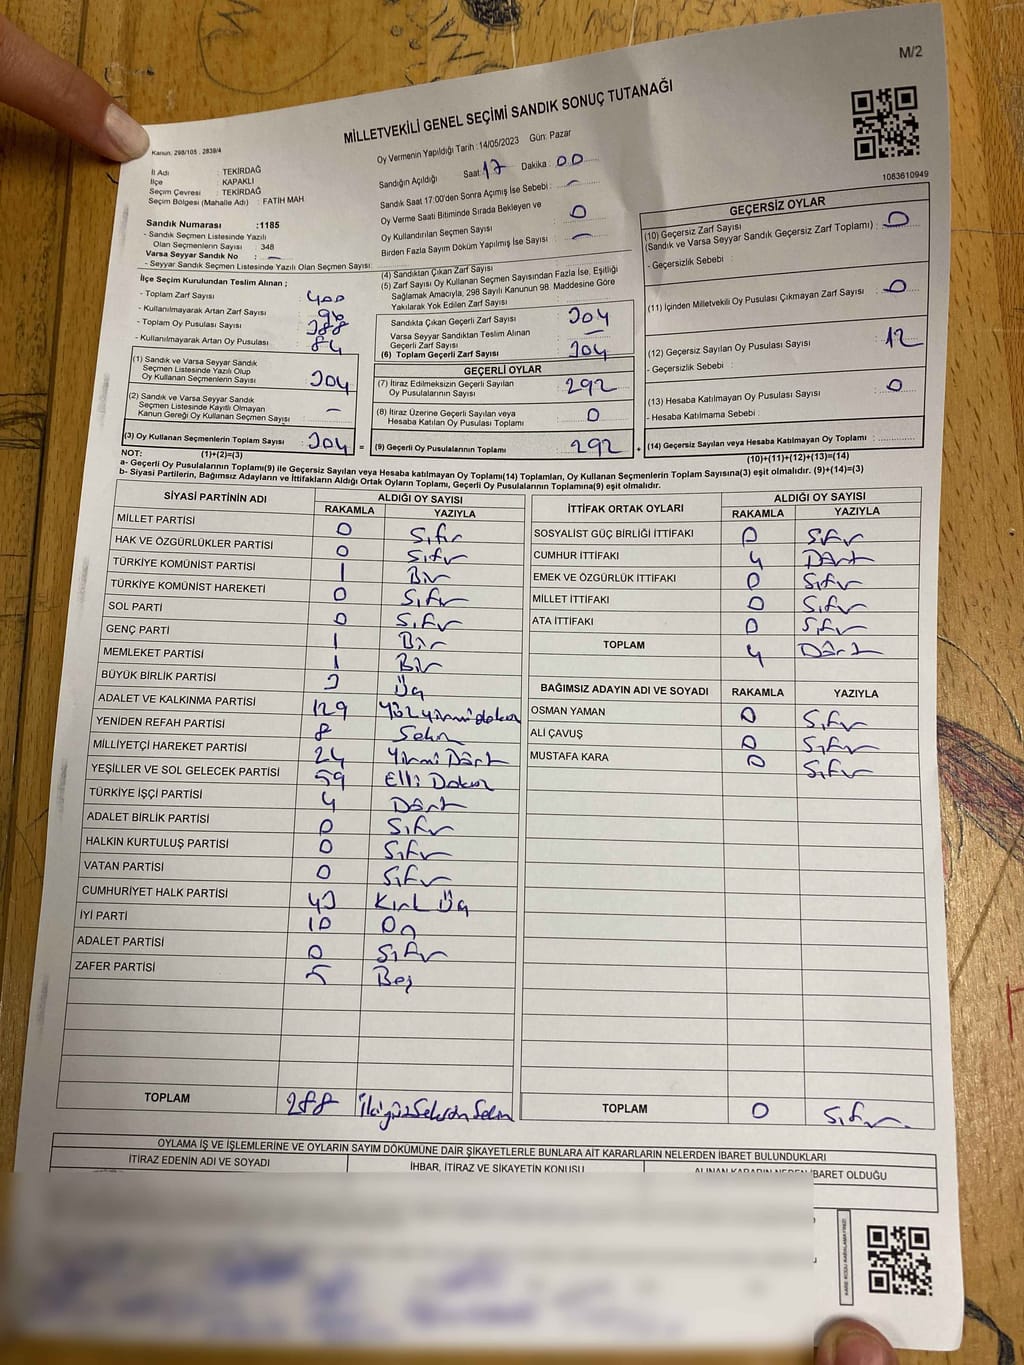 M/2
MİLLETVEKİLİ GENEL SEÇİMİ SANDIK SONUÇ TUTANAĞI
Kanun, 298/105 , 2839/4
Oy Vermenin Yapıldığı Tarih :14/05/2023 Gün: Pazar
1083610949
İl Adı : TEKİRDAĞ
İlçe : KAPAKLI
Seçim Çevresi : TEKİRDAĞ
Seçim Bölgesi (Mahalle Adı) : FATİH MAH
Sandığın Açıldığı Saat: 17 Dakika : 00
Sandık Saat 17:00'den Sonra Açımış İse Sebebi : –
Oy Verme Saati Bitiminde Sırada Bekleyen ve
Oy Kullandırılan Seçmen Sayısı : 0
Birden Fazla Sayım Döküm Yapılmış İse Sayısı : –
Sandık Numarası :1185
- Sandık Seçmen Listesinde Yazılı
Olan Seçmenlerin Sayısı : 348
Varsa Seyyar Sandık No : –
- Seyyar Sandık Seçmen Listesinde Yazılı Olan Seçmen Sayısı:
İlçe Seçim Kurulundan Teslim Alınan ;
- Toplam Zarf Sayısı : 400
- Kullanılmayarak Artan Zarf Sayısı : 96
- Toplam Oy Pusulası Sayısı : 388
- Kullanılmayarak Artan Oy Pusulası : 84
(1) Sandık ve Varsa Seyyar Sandık
Seçmen Listesinde Yazılı Olup
Oy Kullanan Seçmenlerin Sayısı : 304
(2) Sandık ve Varsa Seyyar Sandık
Seçmen Listesinde Kayıtlı Olmayan
Kanun Gereği Oy Kullanan Seçmen Sayısı : –
(3) Oy Kullanan Seçmenlerin Toplam Sayısı : 304
(1)+(2)=(3)
(4) Sandıktan Çıkan Zarf Sayısı :
(5) Zarf Sayısı Oy Kullanan Seçmen Sayısından Fazla İse, Eşitliği
Sağlamak Amacıyla, 298 Sayılı Kanunun 98. Maddesine Göre
Yakılarak Yok Edilen Zarf Sayısı :
Sandıkta Çıkan Geçerli Zarf Sayısı : 304
Varsa Seyyar Sandıktan Teslim Alınan
Geçerli Zarf Sayısı : –
(6) Toplam Geçerli Zarf Sayısı : 304
GEÇERLİ OYLAR
(7) İtiraz Edilmeksizin Geçerli Sayılan
Oy Pusulasının Sayısı : 292
(8) İtiraz Üzerine Geçerli Sayılan veya
Hesaba Katılan Oy Pusulası Toplamı : 0
= (9) Geçerli Oy Pusulalarının Toplamı : 292 +
GEÇERSİZ OYLAR
(10) Geçersiz Zarf Sayısı
(Sandık ve Varsa Seyyar Sandık Geçersiz Zarf Toplamı) : 0
- Geçersizlik Sebebi :
(11) İçinden Milletvekili Oy Pusulası Çıkmayan Zarf Sayısı : 0
(12) Geçersiz Sayılan Oy Pusulası Sayısı : 12
- Geçersizlik Sebebi :
(13) Hesaba Katılmayan Oy Pusulası Sayısı : 0
- Hesaba Katılmama Sebebi :
(14) Geçersiz Sayılan veya Hesaba Katılmayan Oy Toplamı :
(10)+(11)+(12)+(13)=(14)
NOT:
a- Geçerli Oy Pusulalarının Toplamı(9) ile Geçersiz Sayılan veya Hesaba katılmayan Oy Toplamı(14) Toplamları, Oy Kullanan Seçmenlerin Toplam Sayısına(3) eşit olmalıdır. (9)+(14)=(3)
b- Siyasi Partilerin, Bağımsız Adayların ve İttifakların Aldığı Ortak Oyların Toplamı, Geçerli Oy Pusulalarının Toplamına(9) eşit olmalıdır.
SİYASİ PARTİNİN ADI ALDIĞI OY SAYISI
RAKAMLA YAZIYLA
MİLLET PARTİSİ 0 Sıfır
HAK VE ÖZGÜRLÜKLER PARTİSİ 0 Sıfır
TÜRKİYE KOMÜNİST PARTİSİ 1 Bir
TÜRKİYE KOMÜNİST HAREKETİ 0 Sıfır
SOL PARTİ 0 Sıfır
GENÇ PARTİ 1 Bir
MEMLEKET PARTİSİ 1 Bir
BÜYÜK BİRLİK PARTİSİ 3 Üç
ADALET VE KALKINMA PARTİSİ 129 Yüz yirmi dokuz
YENİDEN REFAH PARTİSİ 8 Sekiz
MİLLİYETÇİ HAREKET PARTİSİ 24 Yirmi Dört
YEŞİLLER VE SOL GELECEK PARTİSİ 59 Elli Dokuz
TÜRKİYE İŞÇİ PARTİSİ 4 Dört
ADALET BİRLİK PARTİSİ 0 Sıfır
HALKIN KURTULUŞ PARTİSİ 0 Sıfır
VATAN PARTİSİ 0 Sıfır
CUMHURİYET HALK PARTİSİ 43 Kırk Üç
İYİ PARTİ 10 On
ADALET PARTİSİ 0 Sıfır
ZAFER PARTİSİ 5 Beş
TOPLAM 288 İkiyüz Seksen Sekiz
İTTİFAK ORTAK OYLARI ALDIĞI OY SAYISI
RAKAMLA YAZIYLA
SOSYALİST GÜÇ BİRLİĞİ İTTİFAKI 0 Sıfır
CUMHUR İTTİFAKI 4 Dört
EMEK VE ÖZGÜRLÜK İTTİFAKI 0 Sıfır
MİLLET İTTİFAKI 0 Sıfır
ATA İTTİFAKI 0 Sıfır
TOPLAM 4 Dört
BAĞIMSIZ ADAYIN ADI VE SOYADI RAKAMLA YAZIYLA
OSMAN YAMAN 0 Sıfır
ALİ ÇAVUŞ 0 Sıfır
MUSTAFA KARA 0 Sıfır
TOPLAM 0 Sıfır
OYLAMA İŞ VE İŞLEMLERİNE VE OYLARIN SAYIM DÖKÜMÜNE DAİR ŞİKAYETLERLE BUNLARA AİT KARARLARIN NELERDEN İBARET BULUNDUKLARI
İTİRAZ EDENİN ADI VE SOYADI İHBAR, İTİRAZ VE ŞİKAYETİN KONUSU ALINAN KARARIN NEDEN İBARET OLDUĞU